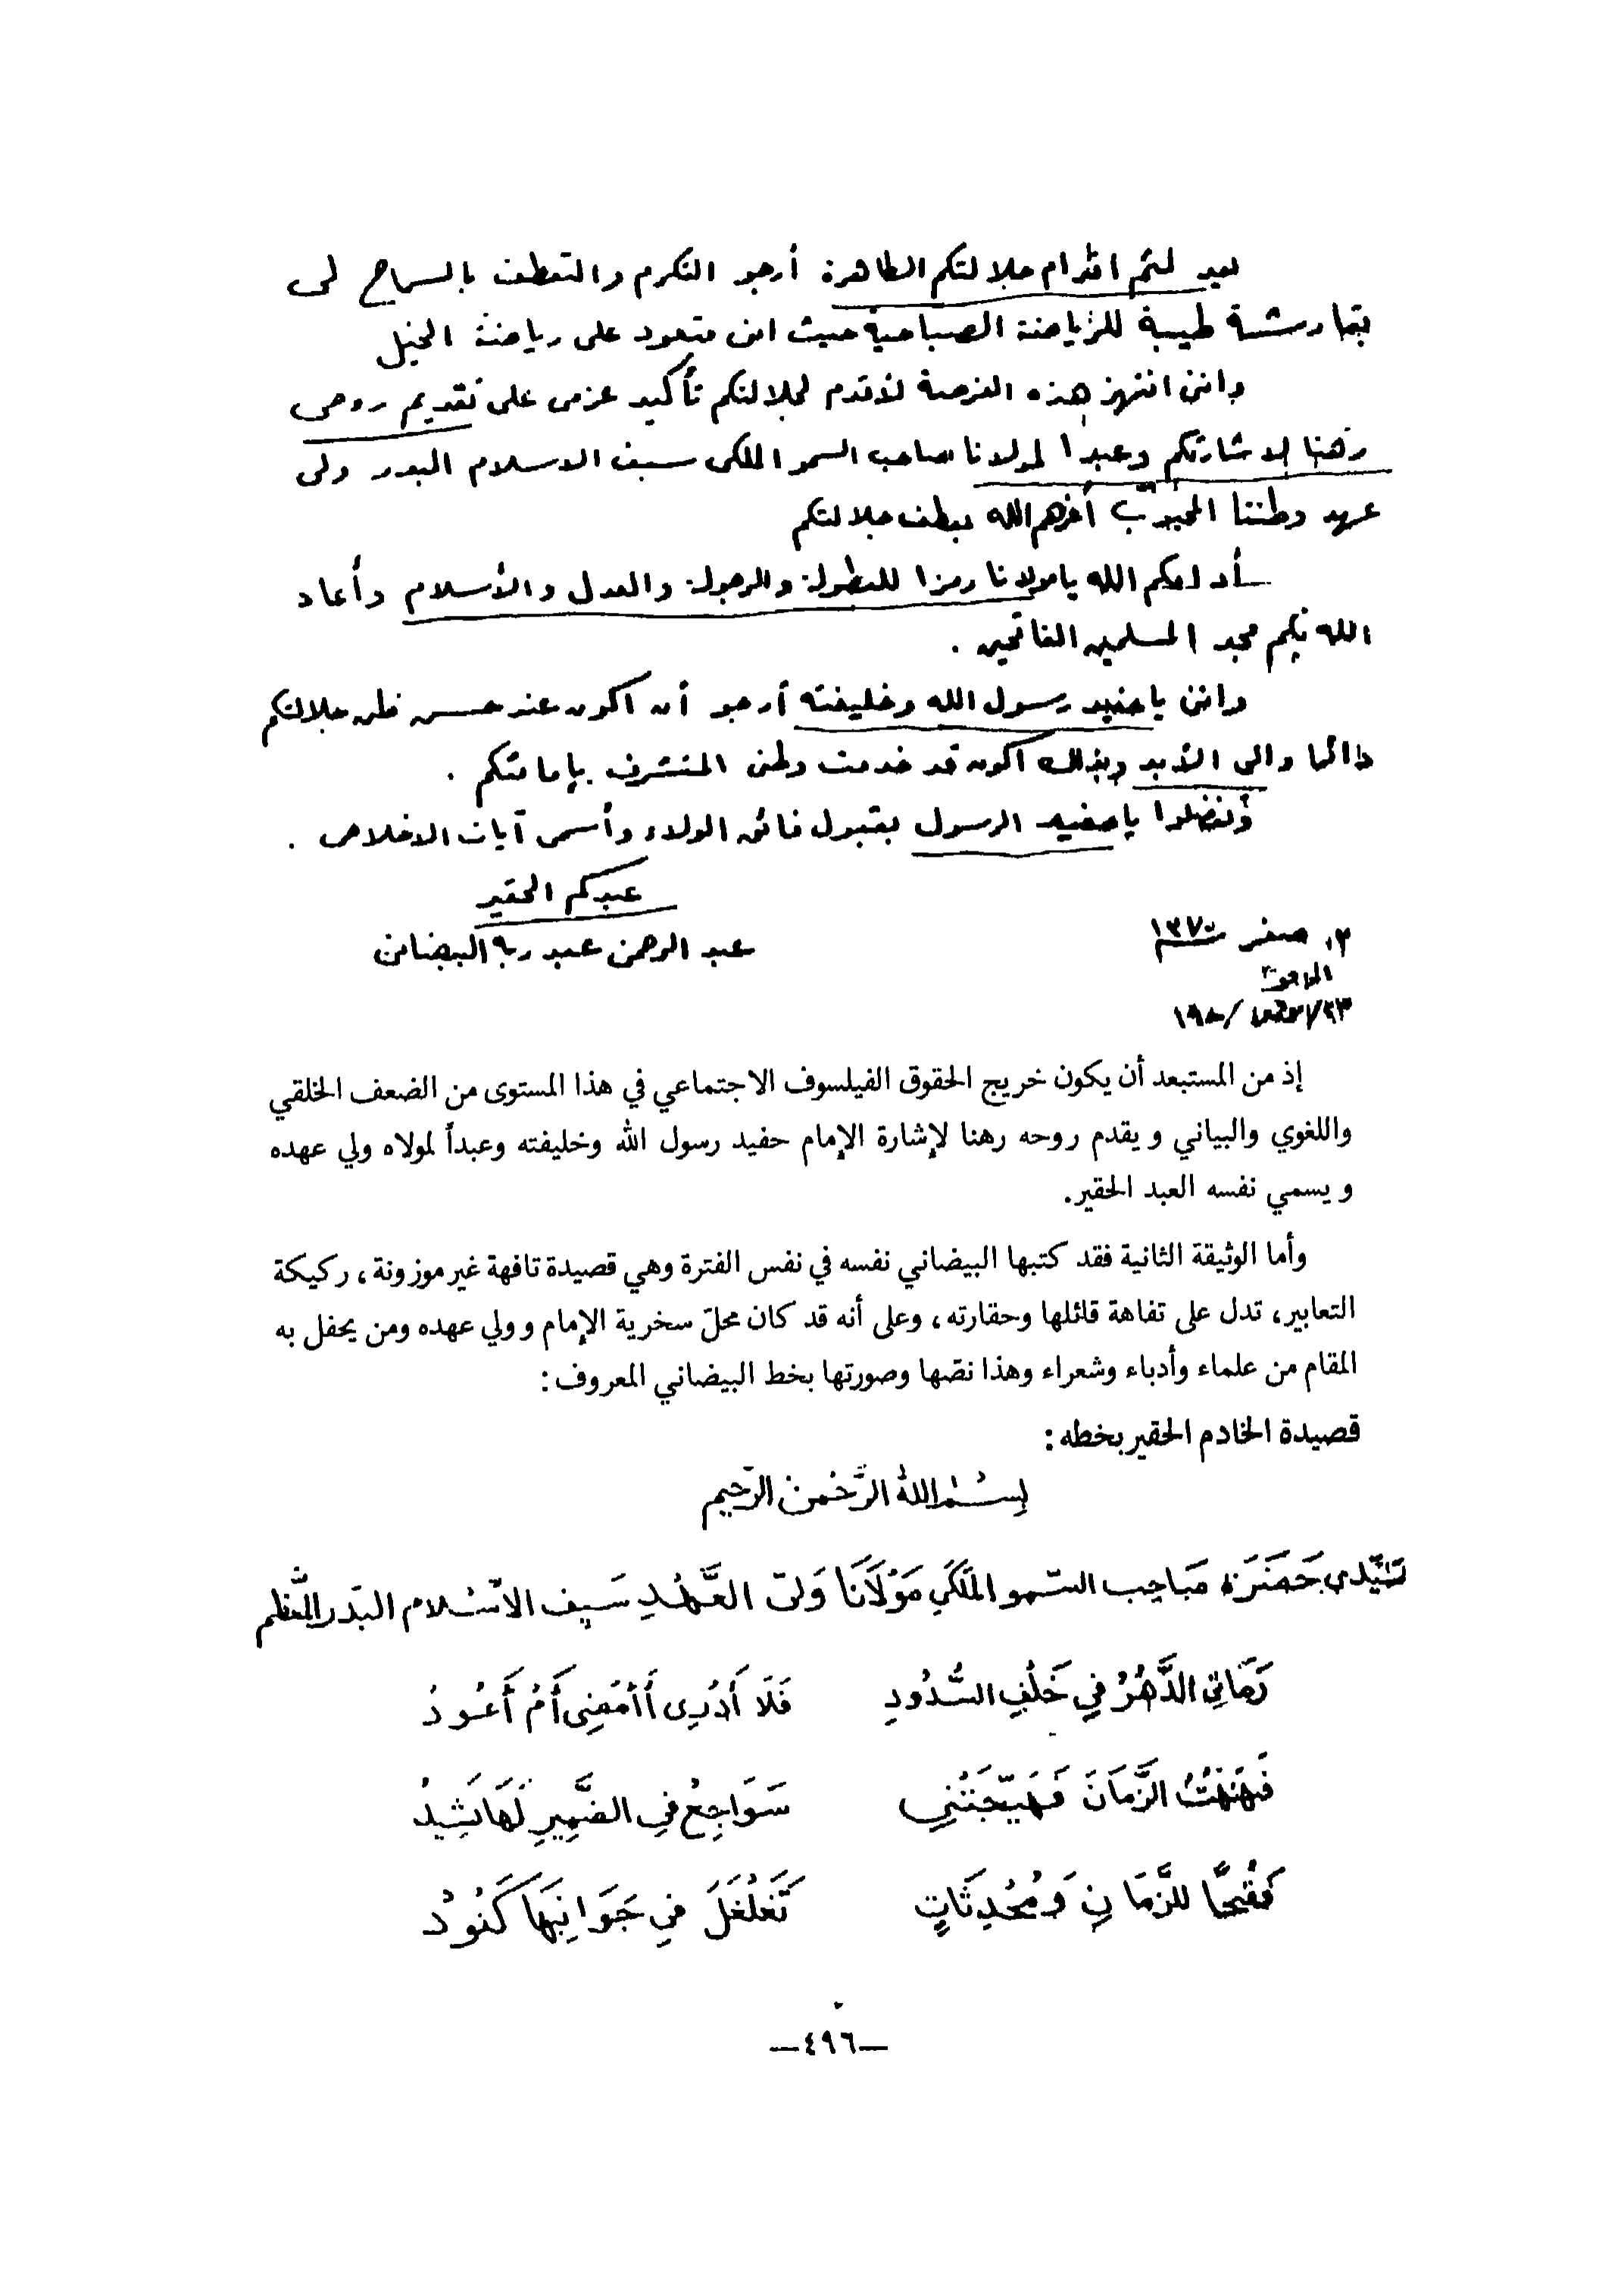 بعد لثم اقدام جلالتكم الطاهرة أرجو التكرم والتعطف بالسماح لى
طيبة للرياضة الصباحية حيث انى متعود على رياضة الخيل
واننى انتهز هذه الفرصة لأقدم لجلالتكم تأكيد عزمى على تقديم روحى
رهنا لاشارتكم وعبدا لمولانا صاحب السمو الملكى سيف الاسلام البدر ولى
عهد وطننا المحبوب أعزهم الله بعطف جلالتكم
أدامكم الله يا مولانا رمزا للبطولة والرجولة والعدل والأسلام وأعاد
الله بكم مجد المسلمين الفاتحين .
واننى يا حفيد رسول الله وخليفته أرجو أن أكون عند حسن ظن جلالتكم
دائما والى الأبد وبذلك أكون قد خدمت وطنى المتشرف بإمامتكم .
وتفضلوا يا حفيد الرسول بقبول فائق الولاء وأسمى آيات الاخلاص .
عبدكم الحقير
عبد الرحمن عبد ربه البيضانى
صفر ١٣٧٠
الموافق
إذ من المستبعد أن يكون خريج الحقوق الفيلسوف الاجتماعي في هذا المستوى من الضعف الخلقي
واللغوي والبياني ويقدم روحه رهنا لإشارة الإمام حفيد رسول الله وخليفته وعبداً لمولاه ولي عهده
ويسمي نفسه العبد الحقير.
وأما الوثيقة الثانية فقد كتبها البيضاني نفسه في نفس الفترة وهي قصيدة تافهة غير موزونة، ركيكة
التعابير، تدل على تفاهة قائلها وحقارته، وعلى أنه قد كان محلّ سخرية الإمام وولي عهده ومن يحفل به
المقام من علماء وأدباء وشعراء وهذا نصّها وصورتها بخط البيضاني المعروف:
قصيدة الخادم الحقير بخطه:
بِسْمِ اللهِ الرَّحْمنِ الرَّحِيمِ
سَيِّدى حَضْرَة صَاحِب السّمو الملَكي مَوْلَانَا وَلىّ العَهْدِ سَيف الاسْلام البَدر المعظم
رَمَانِى الدَّهْرُ فِي خَلْفِ السُّدُودِ فَلَا أَدْرِى أَأَمْضِى أَمْ أَعُودُ
فَنَهْنَهْتُ الزَّمَانَ فَهَيّجَتْنِي سَوَاجِعُ فِي الضَّمِيرِ لَهَا نَشِيدُ
فَقُبْحًا للزَّمَانِ وَمُحْدِثَاتٍ تَغَلْغَلَ فِي جَوَانِبِهَا كَنُودُ
—٤٩٦—